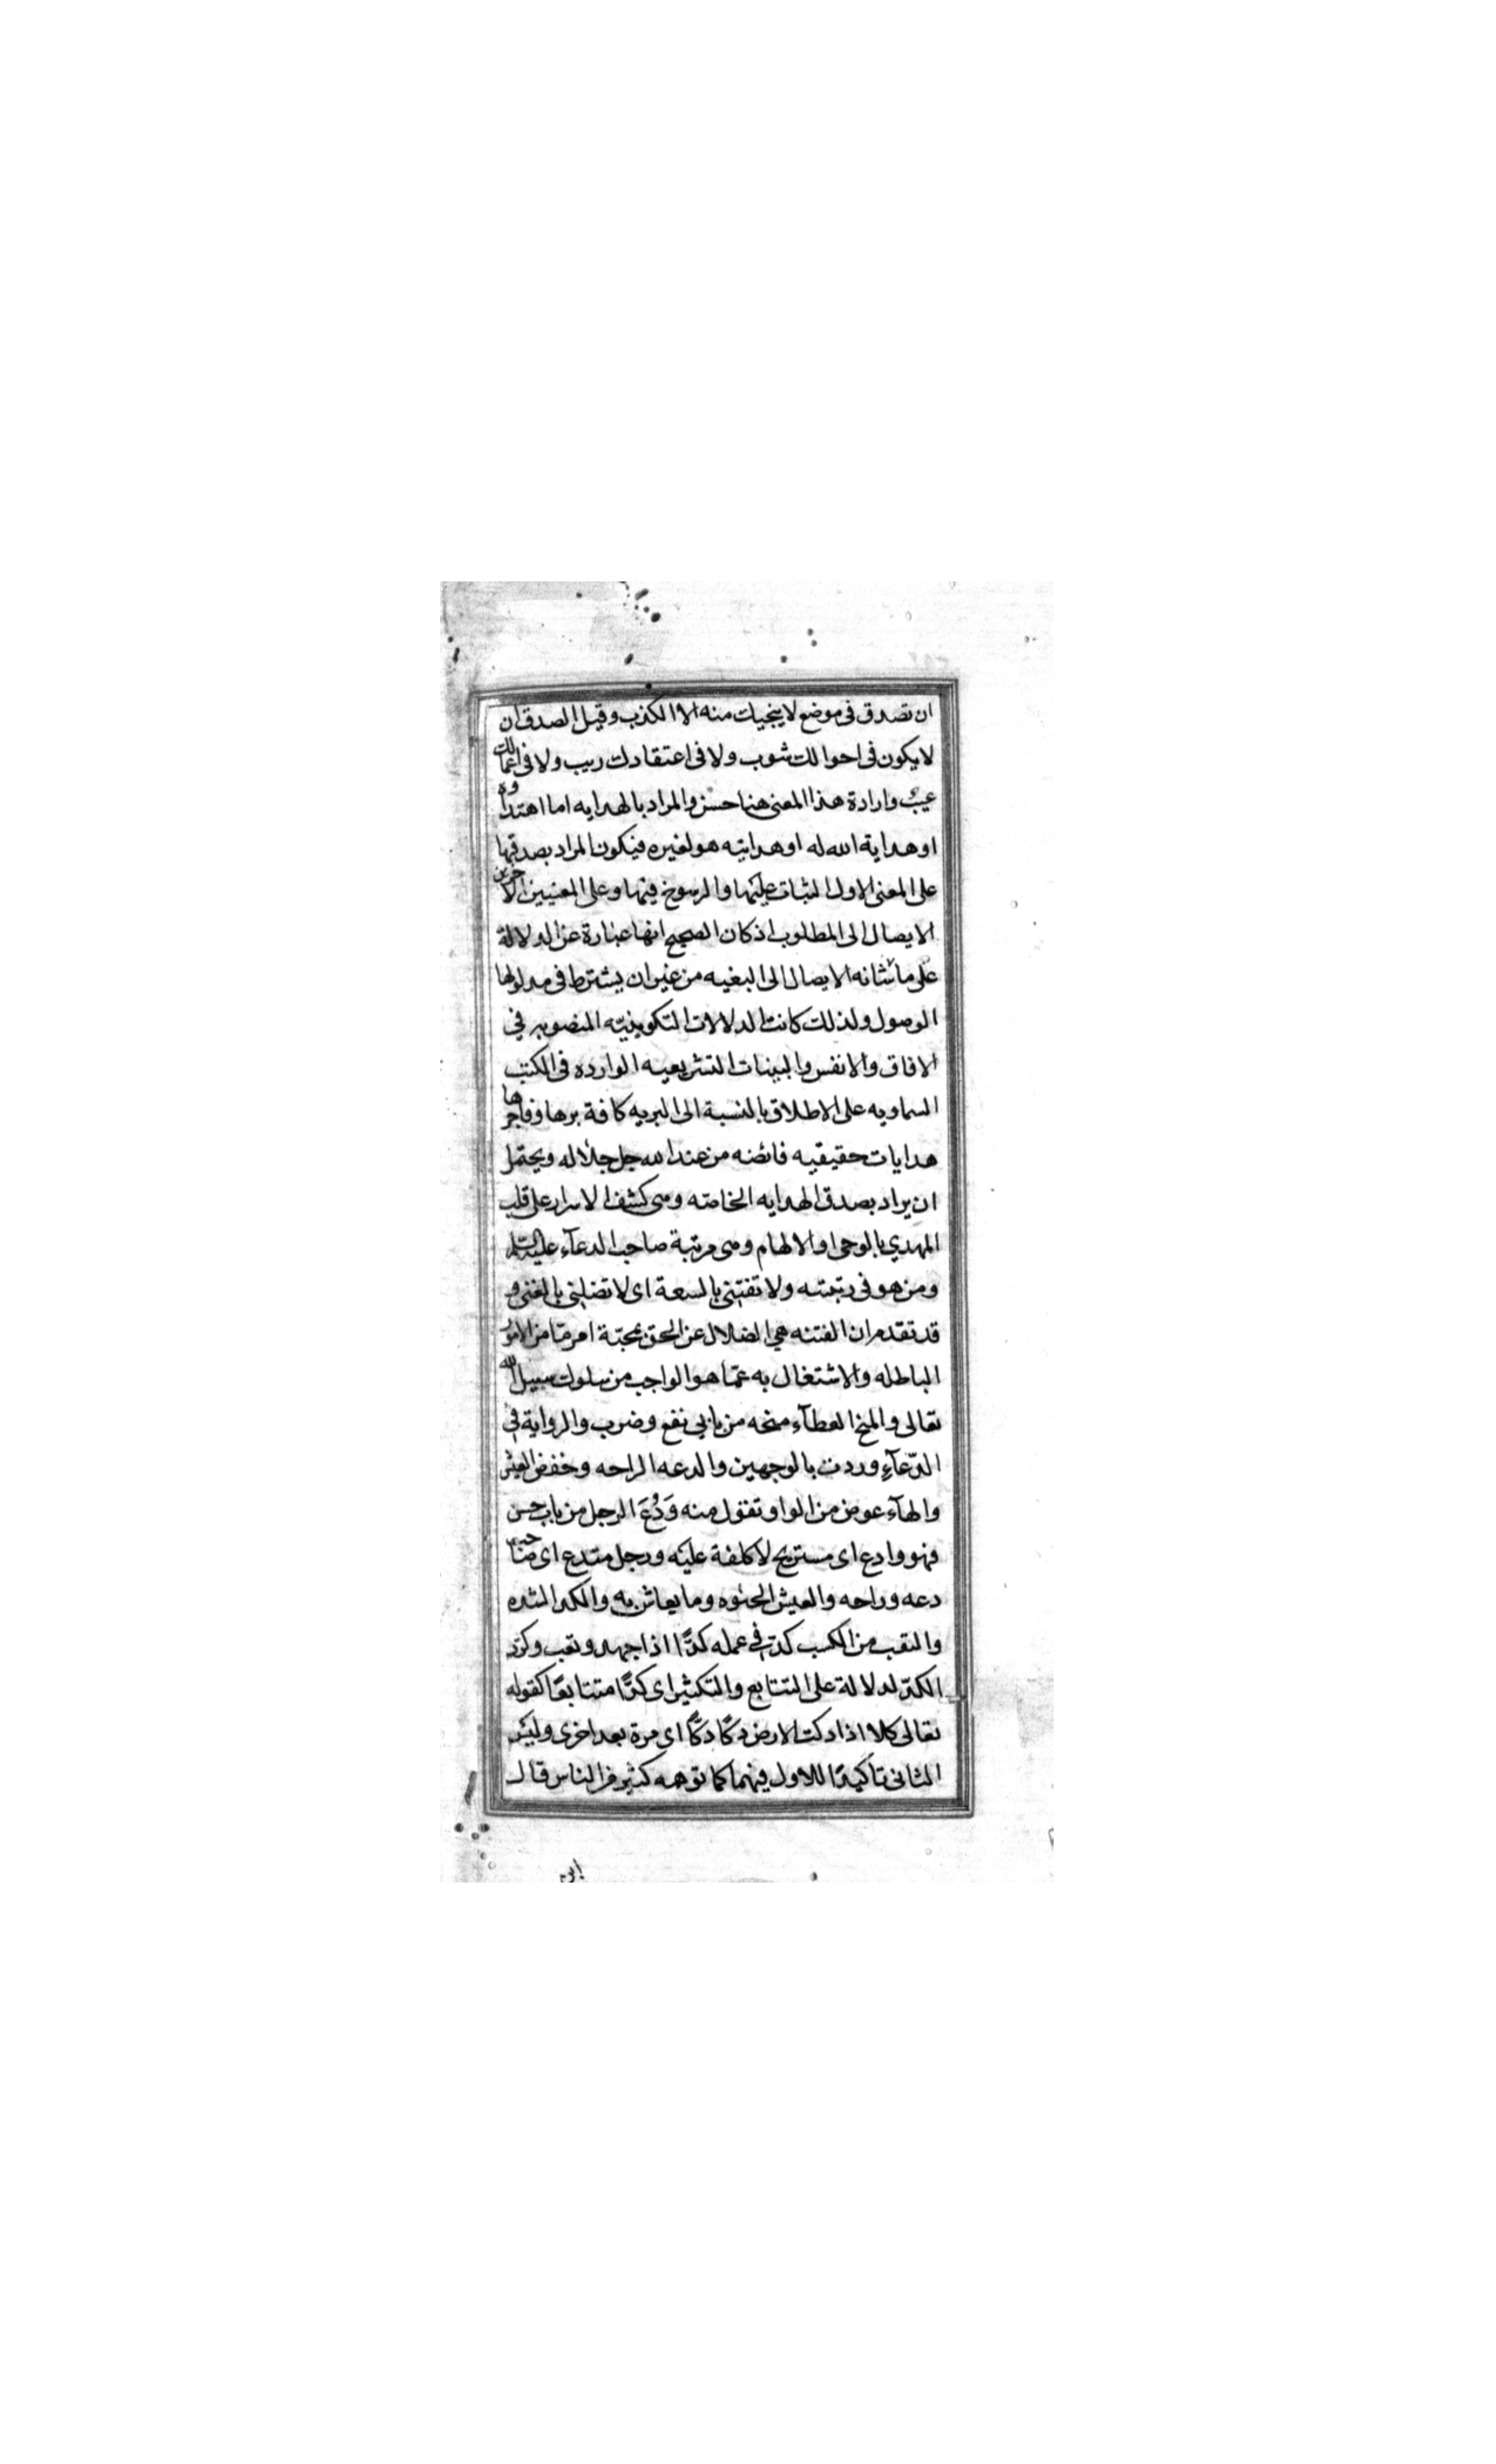 ان تصدق فى موضع لا ينجيك منه الا الكذب وقيل الصدق ان
لا يكون فى احوالك شوب ولا فى اعتقادك ريب ولا فى اعمالك
عيب وارادة هذا المعنى هنا حسن والمراد بالهدايه اما اهتداوه
او هداية الله له او هدايته هو لغيره فيكون المراد بصدقها
على المعنى الاول الثبات عليها والرسوخ فيها وعلى المعنيين الاخرين
الايصال الى المطلوب اذ كان الصحيح انها عبارة عن الدلالة
على ما شانه الايصال الى البغيه من غير ان يشترط فى مدلولها
الوصول ولذلك كانت الدلالات التكوينيّه المنصوبه في
الافاق والانفس والبينات التشريعيه الوارده فى الكتب
السماويه على الاطلاق بالنسبة الى البريه كافة برها وفاجرها
هدايات حقيقيه فائضه من عند الله جل جلاله ويحتمل
ان يراد بصدق الهدايه الخاصّه وهى كشف الاسرار على قلب
المهدي بالوحى او الالهام وهى مرتبة صاحب الدعآء عليه السلم
ومن هو فى رتبته ولا تفتنى بالسعة اى لا تضلنى بالغنى و
قد تقدم ان الفتنه هي الضلال عن الحق بمحبّة امر مّا من الامور
الباطله والاشتغال به عمّا هو الواجب من سلوك سبيل الله
تعالى والمنح العطآء منحه من بابي نفع وضرب والرواية في
الدّعآءِ وردت بالوجهين والدعه الراحه وخفض العيش
والهآء عوض من الواو تقول منه وَدُعَ الرجل من باب حسن
فهو وادع اى مستريح لا كلفة عليه ورجل متدع اى صاحب
دعه وراحه والعيش الحيوه وما يعاش به والكد الشده
والتعب من الكسب كدّ في عمله كدًّا اذا جهد وتعب وكرّر
الكدّ للدلالة على التتابع والتكثير اى كدًّا متتابعًا كقوله
تعالى كلا اذا دكت الارض دكًا دكًّا اى مرة بعد اخرى وليس
الثانى تاكيدًا للاول فيهما كما توهمه كثير من الناس قال
ابن